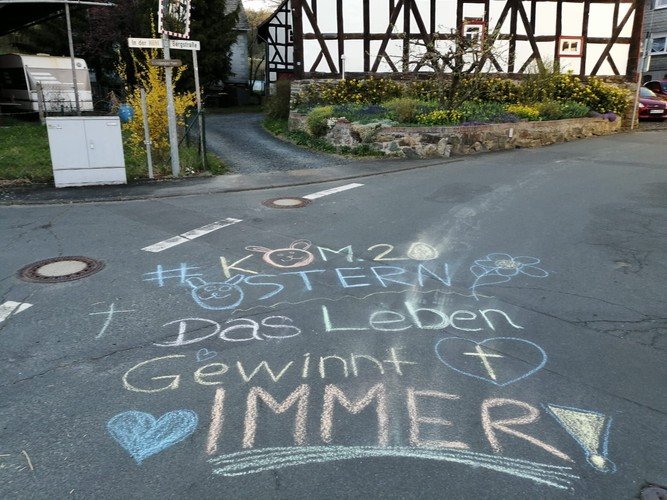 In der Höll
Bergstraße
#KOM.20
OSTERN
Das Leben
Gewinnt
IMMER!